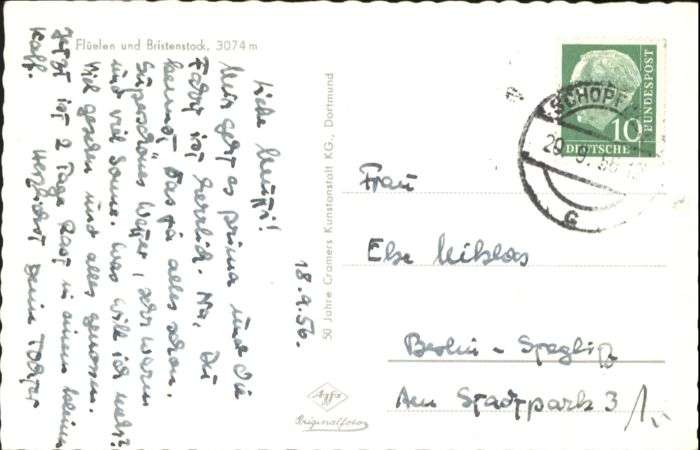 Flüelen und Bristenstock, 3074 m
18.9.56.
Liebe Mutti!
Mir geht es prima und die
Fahrt ist herrlich. Na, Du
kennst das ja alles schon.
Superschönes Wetter, sehr warm
und viel Sonne. Was will ich mehr?
Viel gesehen und alles genossen.
Jetzt ist 2 Tage Rast in einem kleinen
Kaff.
Herzlichst Deine Tochter
50 Jahre Cramers Kunstanstalt KG., Dortmund
Agfa
Originalfoto
DEUTSCHE
BUNDESPOST
10
SCHOPF
Frau
Else Niklas
Berlin - Steglitz
Am Stadtpark 3